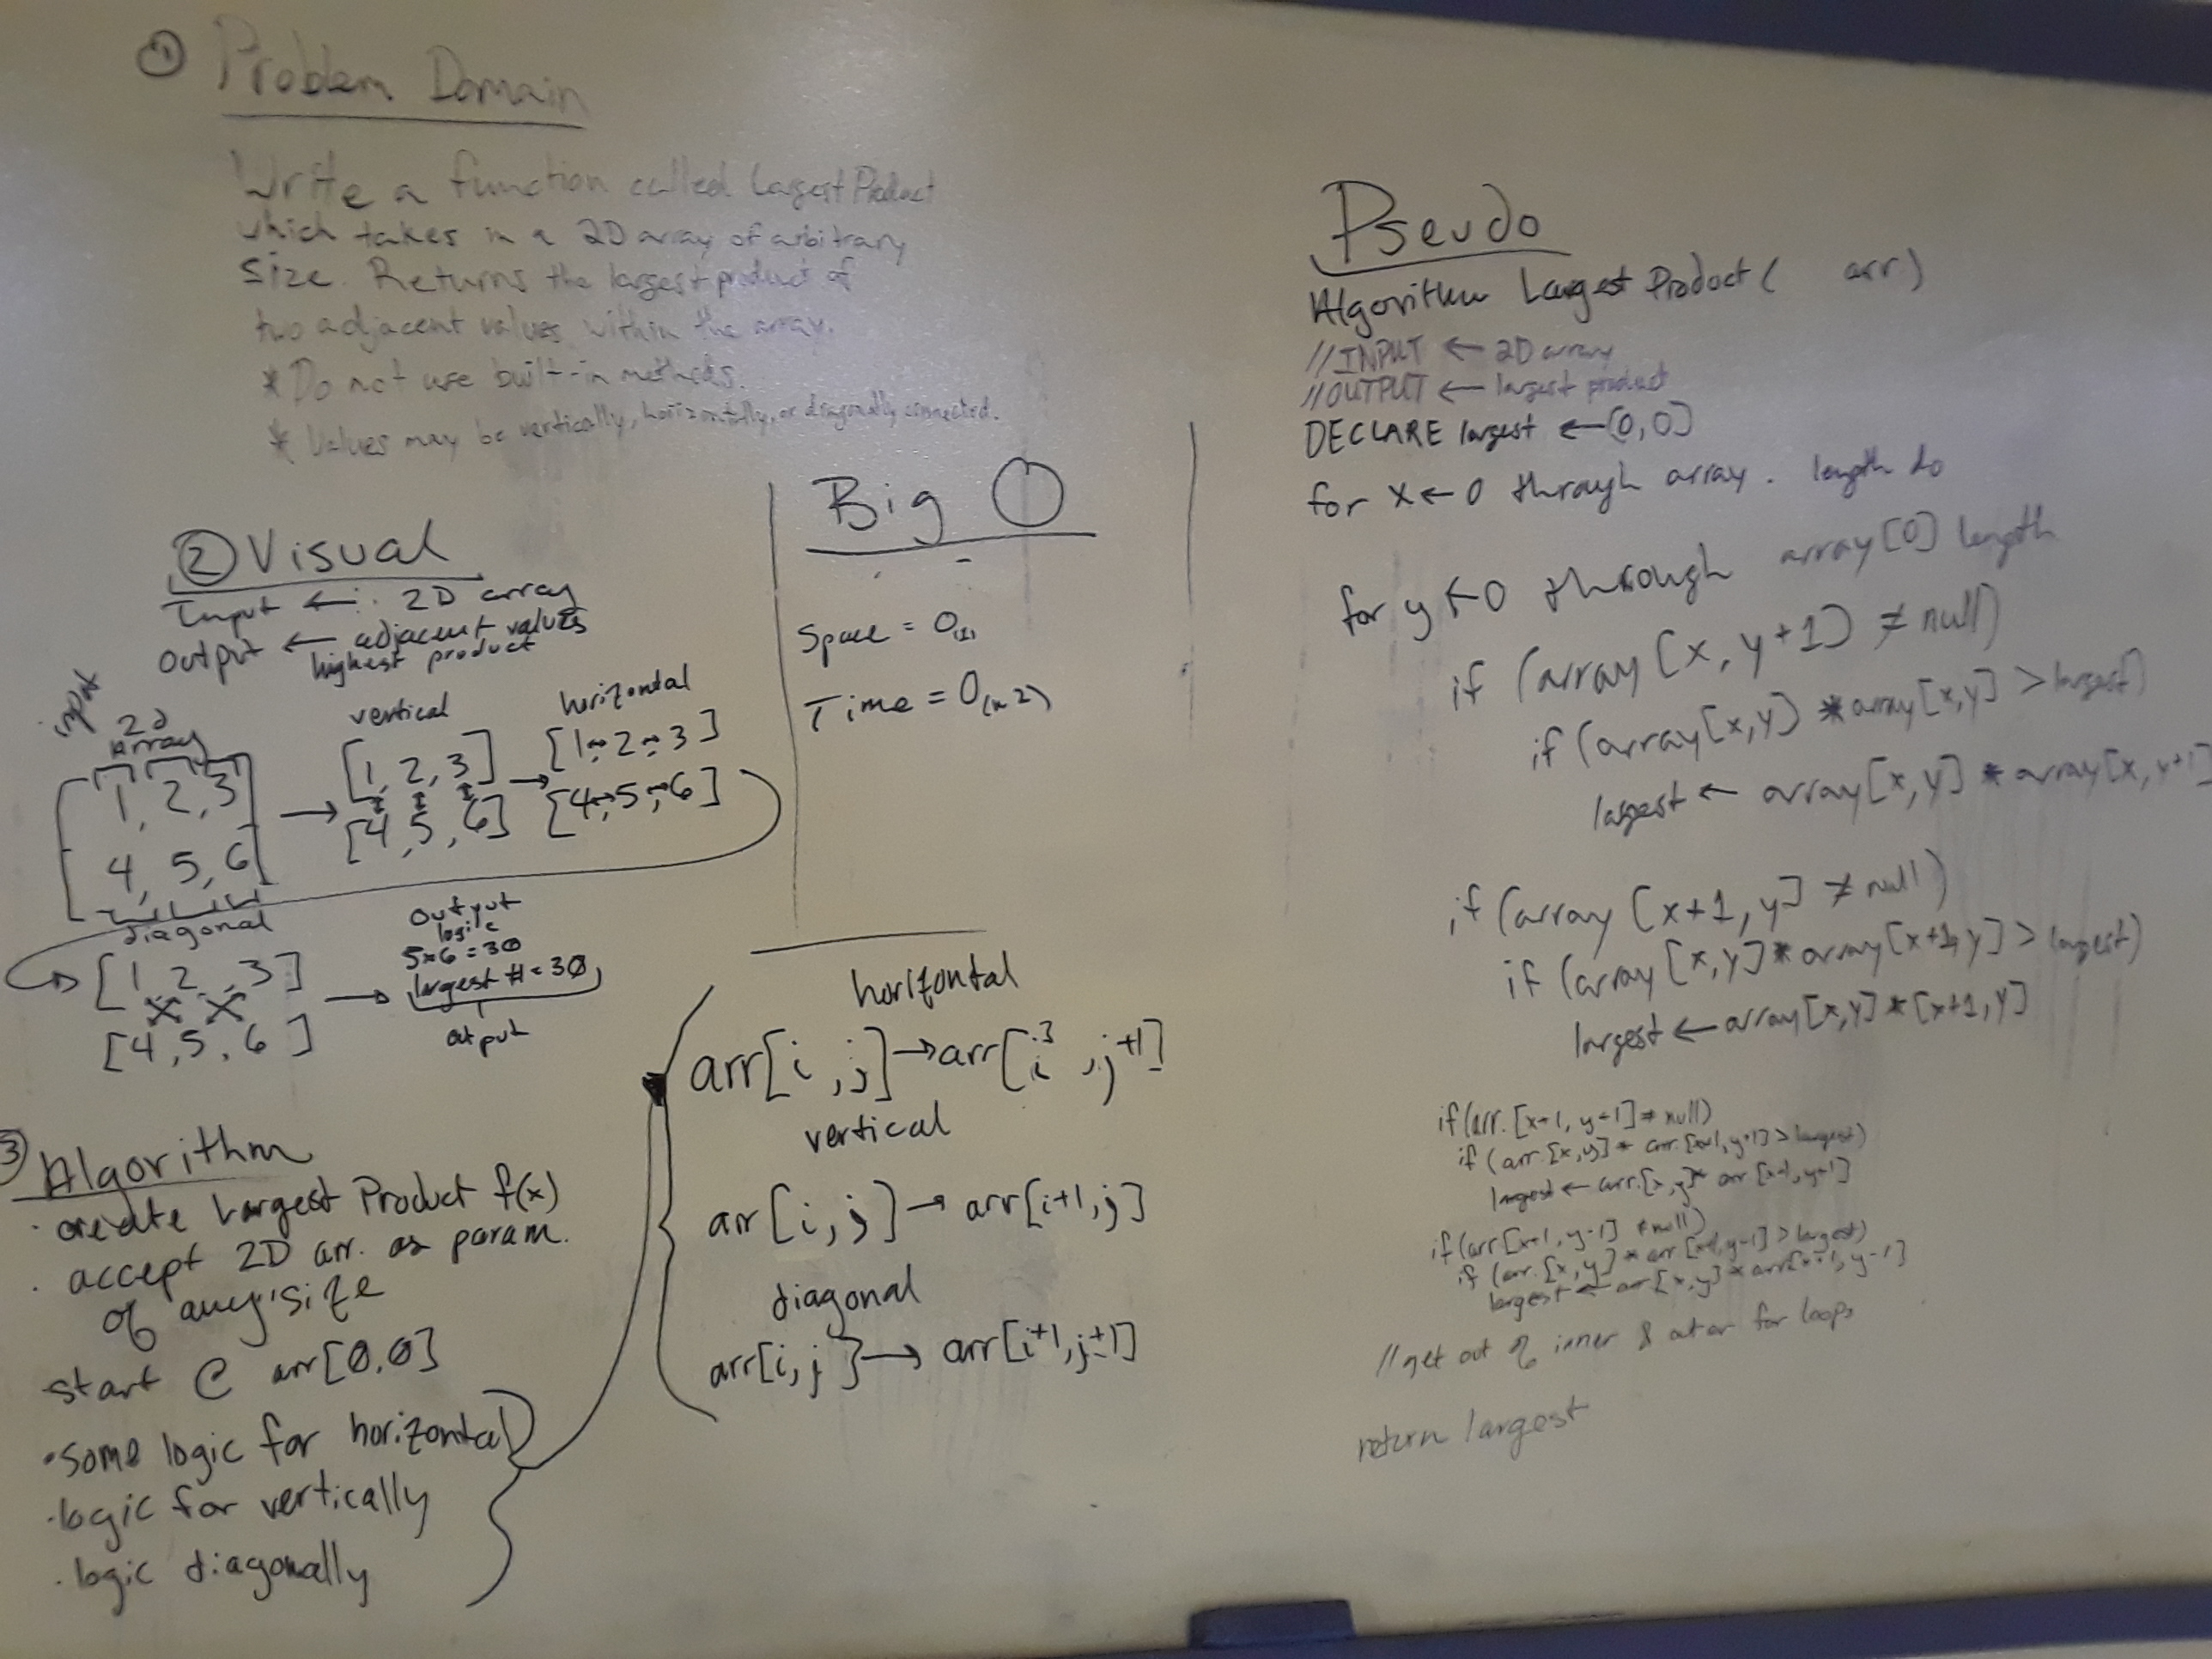 ① Problem Domain
Write a function called LargestProduct
which takes in a 2D array of arbitrary
size. Returns the largest product of
two adjacent values within the array.
* Do not use built-in methods.
* Values may be vertically, horizontally, or diagonally connected.
② Visual
Input ← 2D array
Output ← adjacent values
highest product
input
2d
Array
1, 2, 3
4, 5, 6
vertical
[1, 2, 3]
[4, 5, 6]
horizontal
[1 2 3]
[4 5 6]
diagonal
[1 2, 3]
[4, 5, 6]
Output
logic
5*6 = 30
largest # = 30
output
③ Algorithm
· create Largest Product f(x)
· accept 2D arr. as param.
of any size
start @ arr[0,0]
· some logic for horizontal
· logic for vertically
· logic diagonally
Big O
Space = O(1)
Time = O(n2)
horizontal
arr[i, j] → arr[i, j+1]
vertical
arr[i, j] → arr[i+1, j]
diagonal
arr[i, j] → arr[i+1, j+1]
Pseudo
Algorithm Largest Product( arr)
//INPUT ← 2D array
//OUTPUT ← largest product
DECLARE largest ← [0,0]
for x ← 0 through array. length do
for y ← 0 through array[0] length
if (array[x, y+1] ≠ null)
if (array[x,y] * array[x,y] > largest)
largest ← array[x,y] * array[x, y+1]
if (array [x+1, y] ≠ null)
if (array [x,y] * array[x+1,y] > largest)
largest ← array[x,y] * [x+1,y]
if (arr. [x+1, y+1] ≠ null)
if (arr. [x,y] * arr. [x+1, y+1] > largest)
largest ← arr. [x,y] * arr [x+1, y+1]
if (arr [x+1, y-1] ≠ null)
if (arr. [x,y] * arr [x+1, y-1] > largest)
largest ← arr [x,y] * arr[x+1, y-1]
//get out of inner & outer for loops
return largest